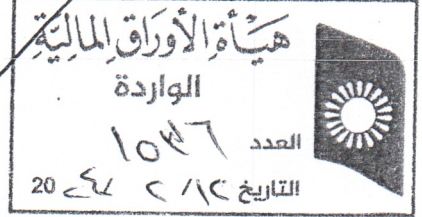 هَيْأَةِ الأَوْرَاقِ المَالِيَّةِ
الواردة
العدد ١٥٣٦
التاريخ ١٢/ ٢ / ٢٤ 20